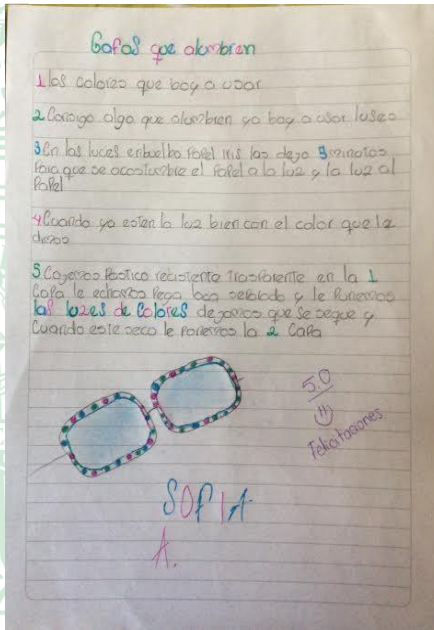 Gafas que alumbran
1 los colores que boy a usar
2 Consigo algo que alumbren yo boy a usar luses
3 En las luces enbuelbo Papel iris las dejo 5 minotos
Para que se acostumbre el Papel a la luz y la luz al
Papel
4 Cuando ya esten la luz bien con el color que le
dimos
5. Cojemos Plastico resistente trasParente en la 1
CaPa le echamos Pega loca serbiado y le Ponemos
las luzes de Colores dejamos que se seque y
Cuando este seco le ponemos la 2 CaPa
5.0
Felicitaciones
SOFIA
A.